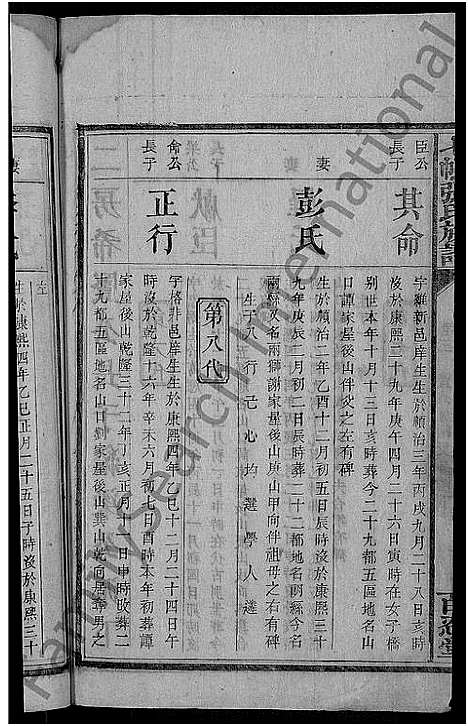 臣公
長子
其命
字維新邑庠生生於順治三年丙戌九月二十八日亥時
沒於康熙二十九年庚午四月二十六日寅時在女子橋
別世本年十月十三日亥時葬今二十九都五區地名山
口譚家屋後山伴父之左有碑
妻
彭氏
生於順治二年乙酉十二月初五日辰時沒於康熙三十
九年庚辰二月初二日辰時葬二十二都地名兩絲今名
兩絲又名兩獅謝家屋後山庚山甲向伴祖母之右有碑
生子八行己心均選學人達
第八代
命公
長子
正行
字格非邑庠生生於康熙四年乙巳十二月二十四日午
時沒於乾隆十六年辛未六月初七日酉時本年初葬譚
家屋後山乾隆三十二年丁亥正月一日申時改葬二
十九都五區地名山口譚家屋後山巽山乾向居葬男之
左
妻
生於康熙四年乙巳正月二十五日子時沒於康熙三十
張氏族譜
百忍堂
FamilySearch International